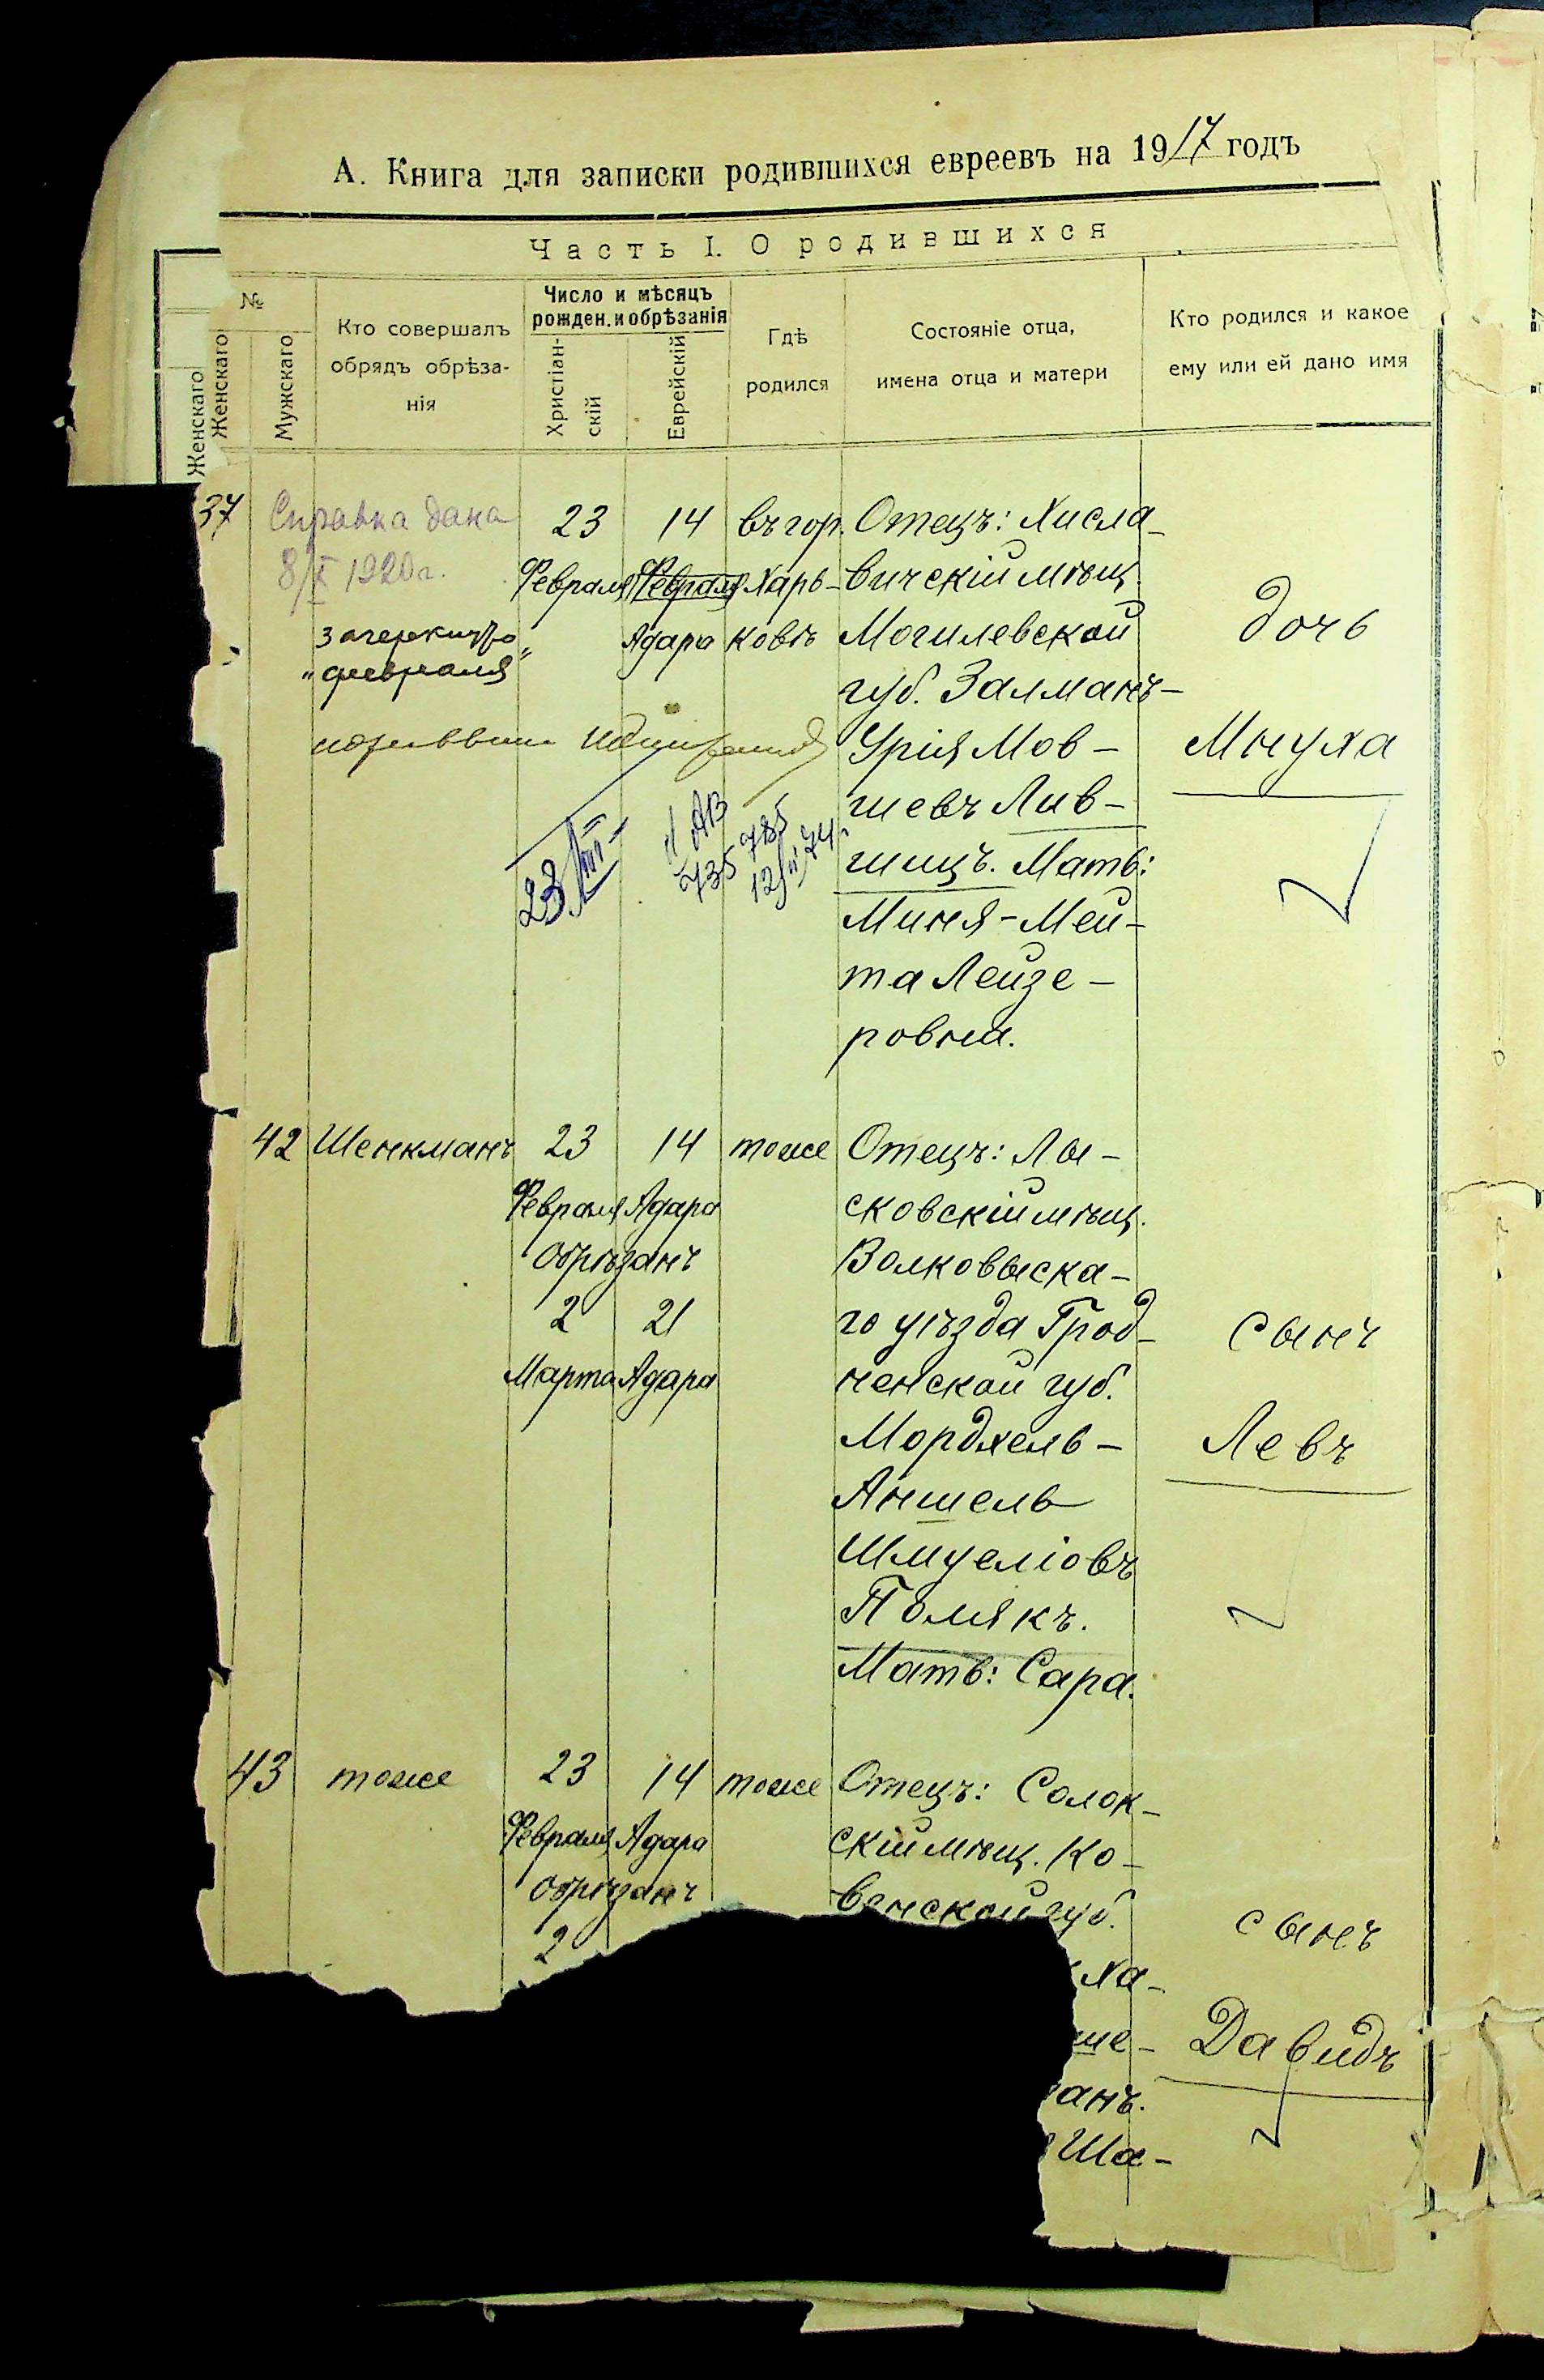 А. Книга для записки родившихся евреевъ на 1917 годъ
Часть I. О родившихся
№
Женскаго
Женскаго
Мужскаго
Кто совершалъ
обрядъ обрѣза-
нія
Число и мѣсяцъ
рожден. и обрѣзанія
Христіан-
скій
Еврейскій
Гдѣ
родился
Состояніе отца,
имена отца и матери
Кто родился и какое
ему или ей дано имя
37
Справка дана
8/X 1920 г.
зачеркнуто
"февраля"
23
Февраля
14
Февраля
Адара
въ гор.
Харь-
ковѣ
Отецъ: Хисла-
вичскій мѣщ.
Могилевской
губ. Залманъ-
Урія Мов-
шевъ Лив-
шицъ. Мать:
Миня-Мей-
та Лейзе-
ровна.
дочь
Мнуха
28/III
II АВ
735785
12/II 74 г.
42
Шенкманъ
23
Февраля
14
Адара
обрѣзанъ
2
Марта
21
Адара
тоже
Отецъ: Лы-
сковскій мѣщ.
Волковыска-
го уѣзда Грод-
ненской губ.
Мордхель-
Аншель
Шмуеліовъ
Полякъ.
Мать: Сара.
сынъ
Левъ
43
тоже
23
Февраля
14
Адара
обрѣзанъ
2
тоже
Отецъ: Солок-
скій мѣщ. Ко-
венской губ.
Ха-
ше-
анъ.
Ша-
сынъ
Давидъ